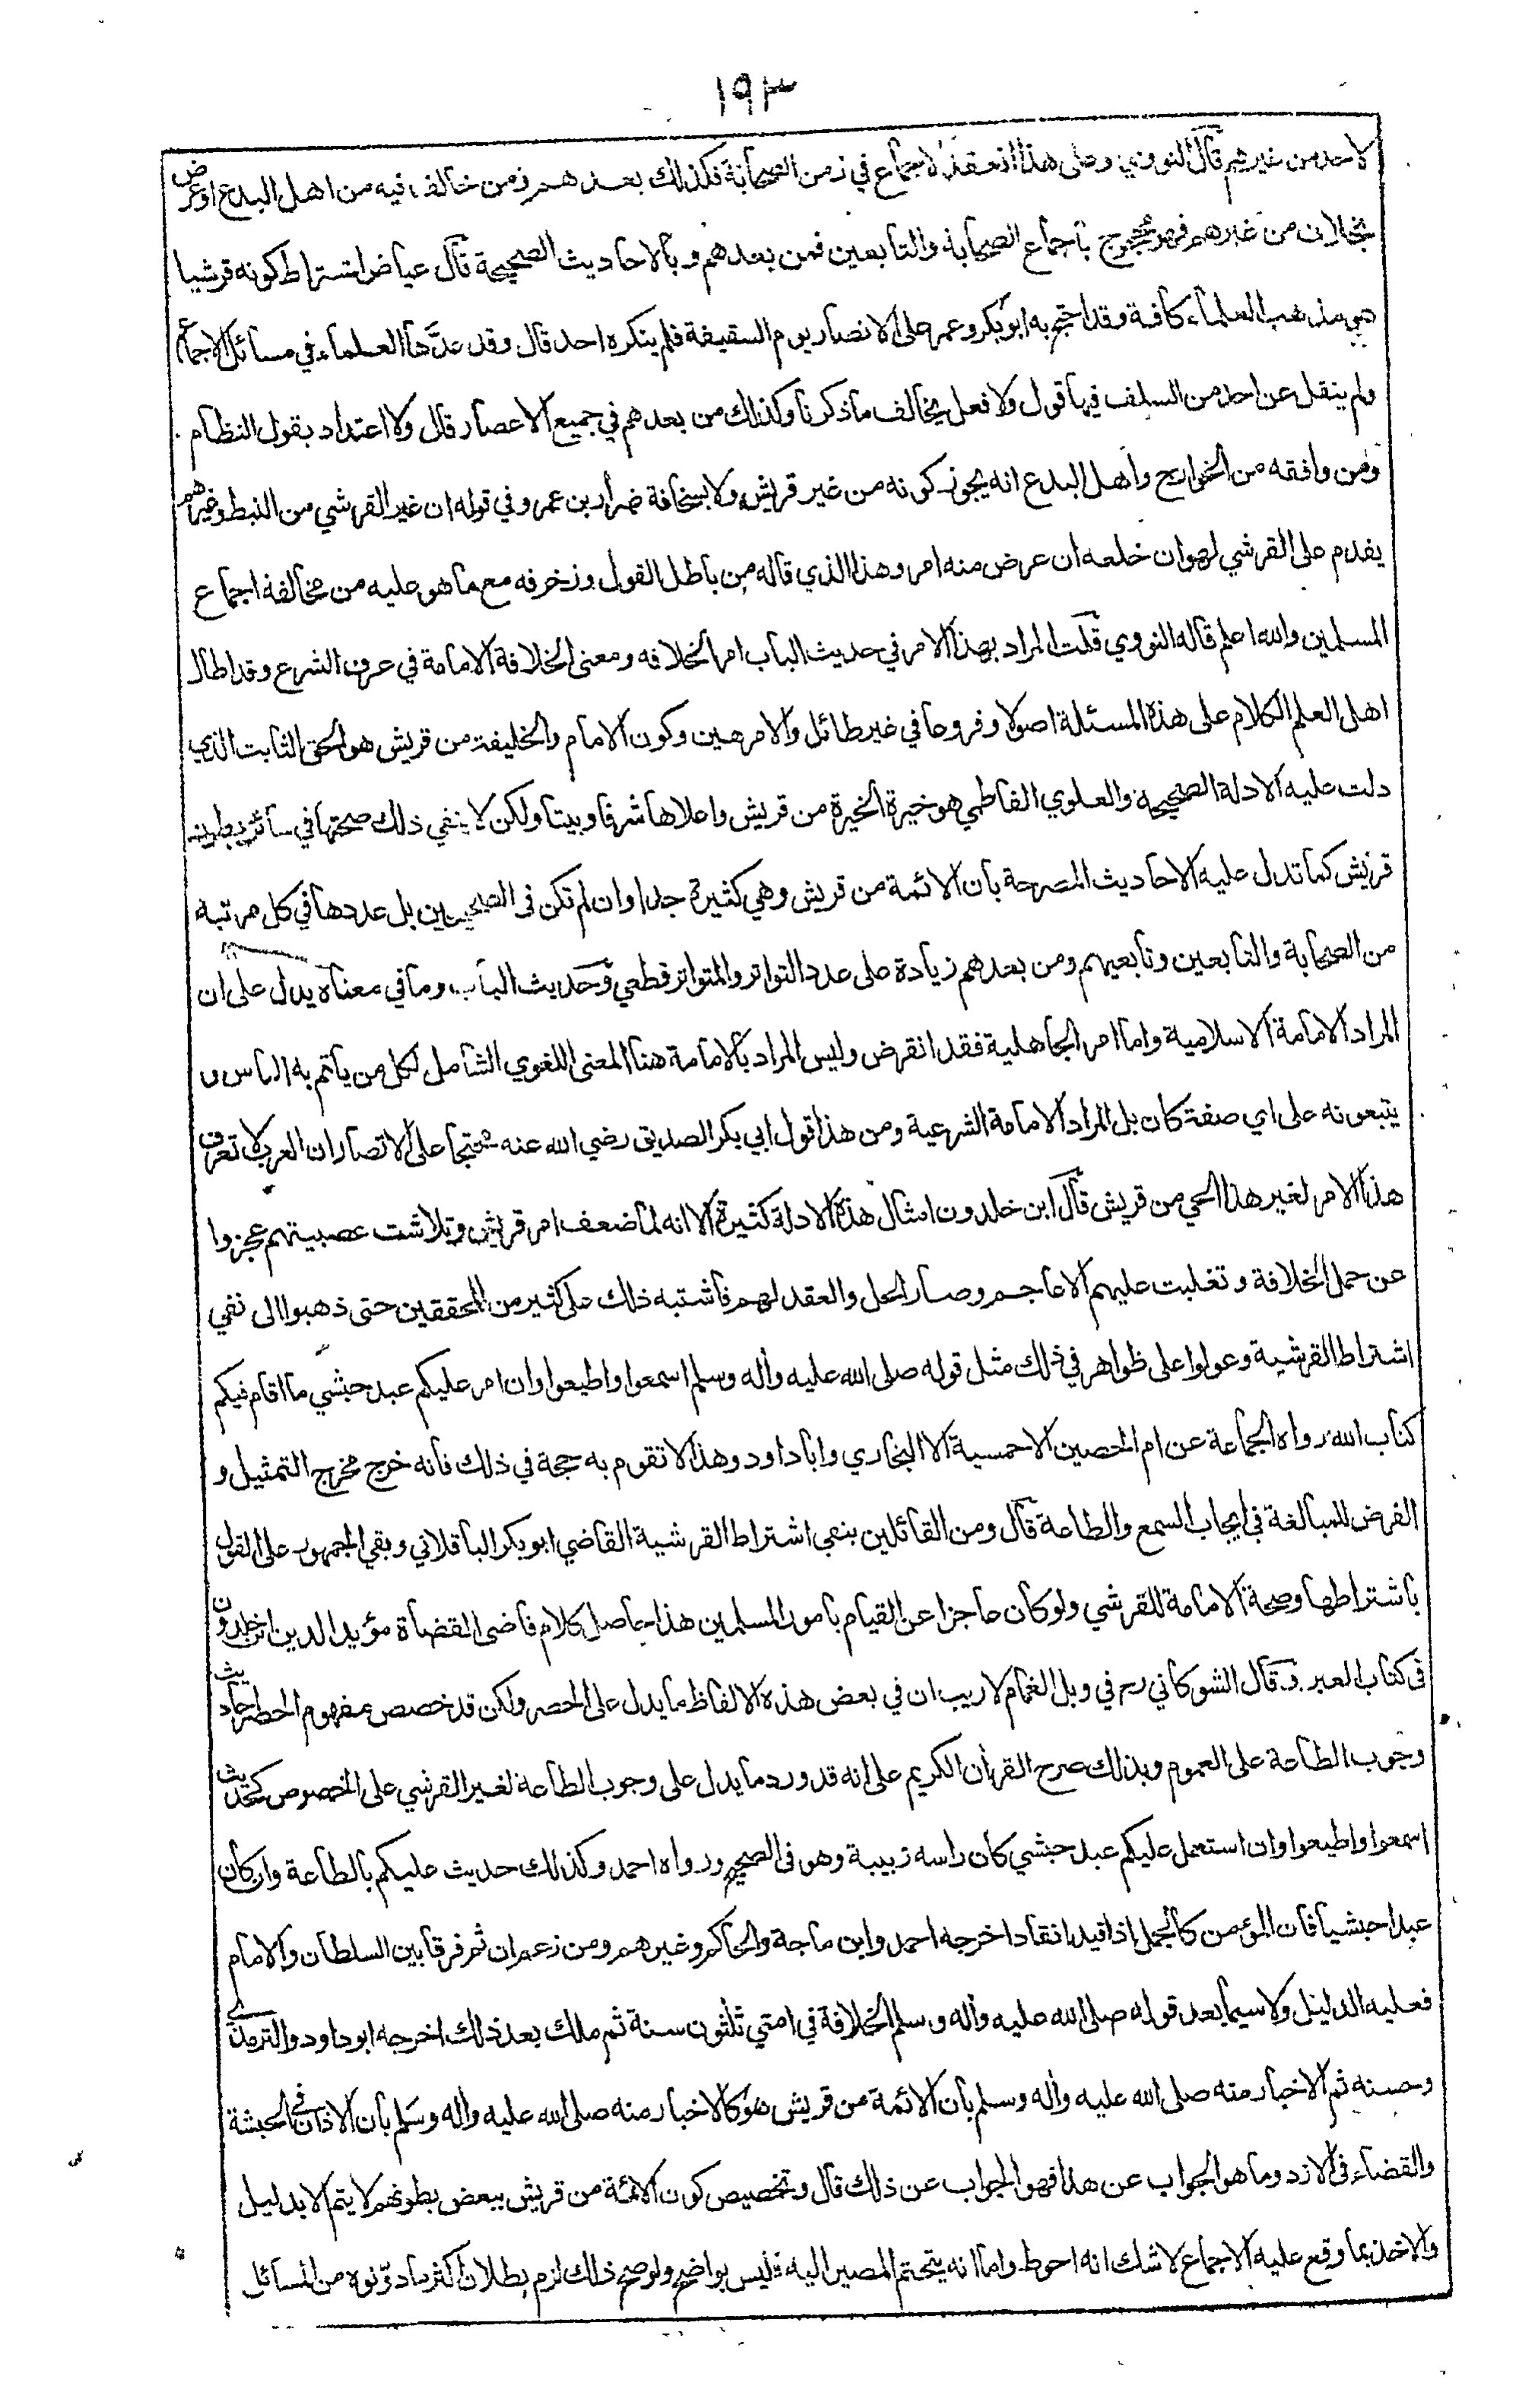 ١٩٣
لاحد من غيرهم قال النووي وعلى هذا انعقد الاجماع في زمن الصحابة فكذلك بعدهم ومن خالف فيه من اهل البدع او عرض
بخلاف من غيرهم فهو محجوج باجماع الصحابة والتابعين فمن بعدهم وبالاحاديث الصحيحة قال عياض اشتراط كونه قرشيا
هو مذهب العلماء كافة وقد احتج به ابو بكر وعمر على الانصار يوم السقيفة فلم ينكره احد قال وقد عدها العلماء في مسائل الاجماع
ولم ينقل عن احد من السلف فيها قول ولا فعل يخالف ما ذكرنا وكذلك من بعدهم في جميع الاعصار قال ولا اعتداد بقول النظام
ومن وافقه من الخوارج واهل البدع انه يجوز كونه من غير قريش ولا بسخافة ضرار بن عمرو في قوله ان غير القرشي من النبط وغيرهم
يقدم على القرشي لهوان خلعه ان عرض منه امر وهذا الذي قاله من باطل القول وزخرفه مع ما هو عليه من مخالفة اجماع
المسلمين والله اعلم قاله النووي قلت المراد بهذا الامر في حديث الباب امر الخلافه ومعنى الخلافة الامامة في عرف الشرع وقد اطال
اهل العلم الكلام على هذه المسئلة اصولا وفروعا في غير طائل والامر هين وكون الامام والخليفة من قريش هو الحق الثابت الذي
دلت عليه الادلة الصحيحة والعلوي الفاطمي هو خيرة الخيرة من قريش واعلاها شرفا وبيتا ولكن لا ينفي ذلك صحتها في سائر بطون
قريش كما تدل عليه الاحاديث المصرحة بان الائمة من قريش وهي كثيرة جدا وان لم تكن في الصحيحين بل عددها في كل مرتبة
من الصحابة والتابعين وتابعيهم ومن بعدهم زيادة على عدد التواتر والمتواتر قطعي وحديث الباب وما في معناه يدل على ان
المراد الامامة الاسلامية واما امر الجاهلية فقد انقرض وليس المراد بالامامة هنا المعنى اللغوي الشامل لكل من ياتم به الناس و
يتبعونه على اي صفة كان بل المراد الامامة الشرعية ومن هذا قول ابي بكر الصديق رضي الله عنه محتجا على الانصار ان العرب لا تعرف
هذا الامر لغير هذا الحي من قريش قال ابن خلدون امثال هذه الادلة كثيرة الا انه لما ضعف امر قريش وتلاشت عصبيتهم عجزوا
عن حمل الخلافة وتغلبت عليهم الاعاجم وصار الحل والعقد لهم فاشتبه ذلك على كثير من المحققين حتى ذهبوا الى نفي
اشتراط القرشية وعولوا على ظواهر في ذلك مثل قوله صلى الله عليه وأله وسلم اسمعوا واطيعوا وان امر عليكم عبد حبشي ما اقام فيكم
كتاب الله رواه الجماعة عن ام الحصين الاحمسية الا البخاري وابا داود وهذا لا تقوم به حجة في ذلك فانه خرج مخرج التمثيل و
الفرض للمبالغة في ايجاب السمع والطاعة قال ومن القائلين بنفي اشتراط القرشية القاضي ابو بكر الباقلاني وبقي الجمهور على القول
باشتراطها وصحة الامامة للقرشي ولو كان عاجزا عن القيام بامور المسلمين هذا حاصل كلام قاضى القضاة مؤيد الدين ابن خلدون
في كتاب العبر وقال الشوكاني رح في وبل الغمام لا ريب ان في بعض هذه الالفاظ ما يدل على الحصر ولكن قد خصص مفهوم الحصر احاديث
وجوب الطاعة على العموم وبذلك صرح القرأن الكريم على انه قد ورد ما يدل على وجوب الطاعة لغير القرشي على الخصوص كحديث
اسمعوا واطيعوا وان استعمل عليكم عبد حبشي كان راسه زبيبة وهو في الصحيح ورواه احمد وكذلك حديث عليكم بالطاعة وان كان
عبدا حبشيا فان المؤمن كالجمل اذا قيد انقاد اخرجه احمد وابن ماجة والحاكم وغيرهم ومن زعم ان ثم فرقا بين السلطان والامام
فعليه الدليل ولا سيما بعد قوله صلى الله عليه وأله وسلم الخلافة في امتي ثلثون سنة ثم ملك بعد ذلك اخرجه ابو داود والترمذي
وحسنه ثم الاخبار منه صلى الله عليه وأله وسلم بان الائمة من قريش هو كالاخبار منه صلى الله عليه وأله وسلم بان الاذان في الحبشة
والقضاء في الازد وما هو الجواب عن هذا فهو الجواب عن ذلك قال وتخصيص كون الائمة من قريش ببعض بطونهم لا يتم الا بدليل
والاخذ بما وقع عليه الاجماع لا شك انه احوط واما انه يتحتم المصير اليه فليس بواضح ولو صح ذلك لزم بطلان اكثر ما دونوه من المسائل